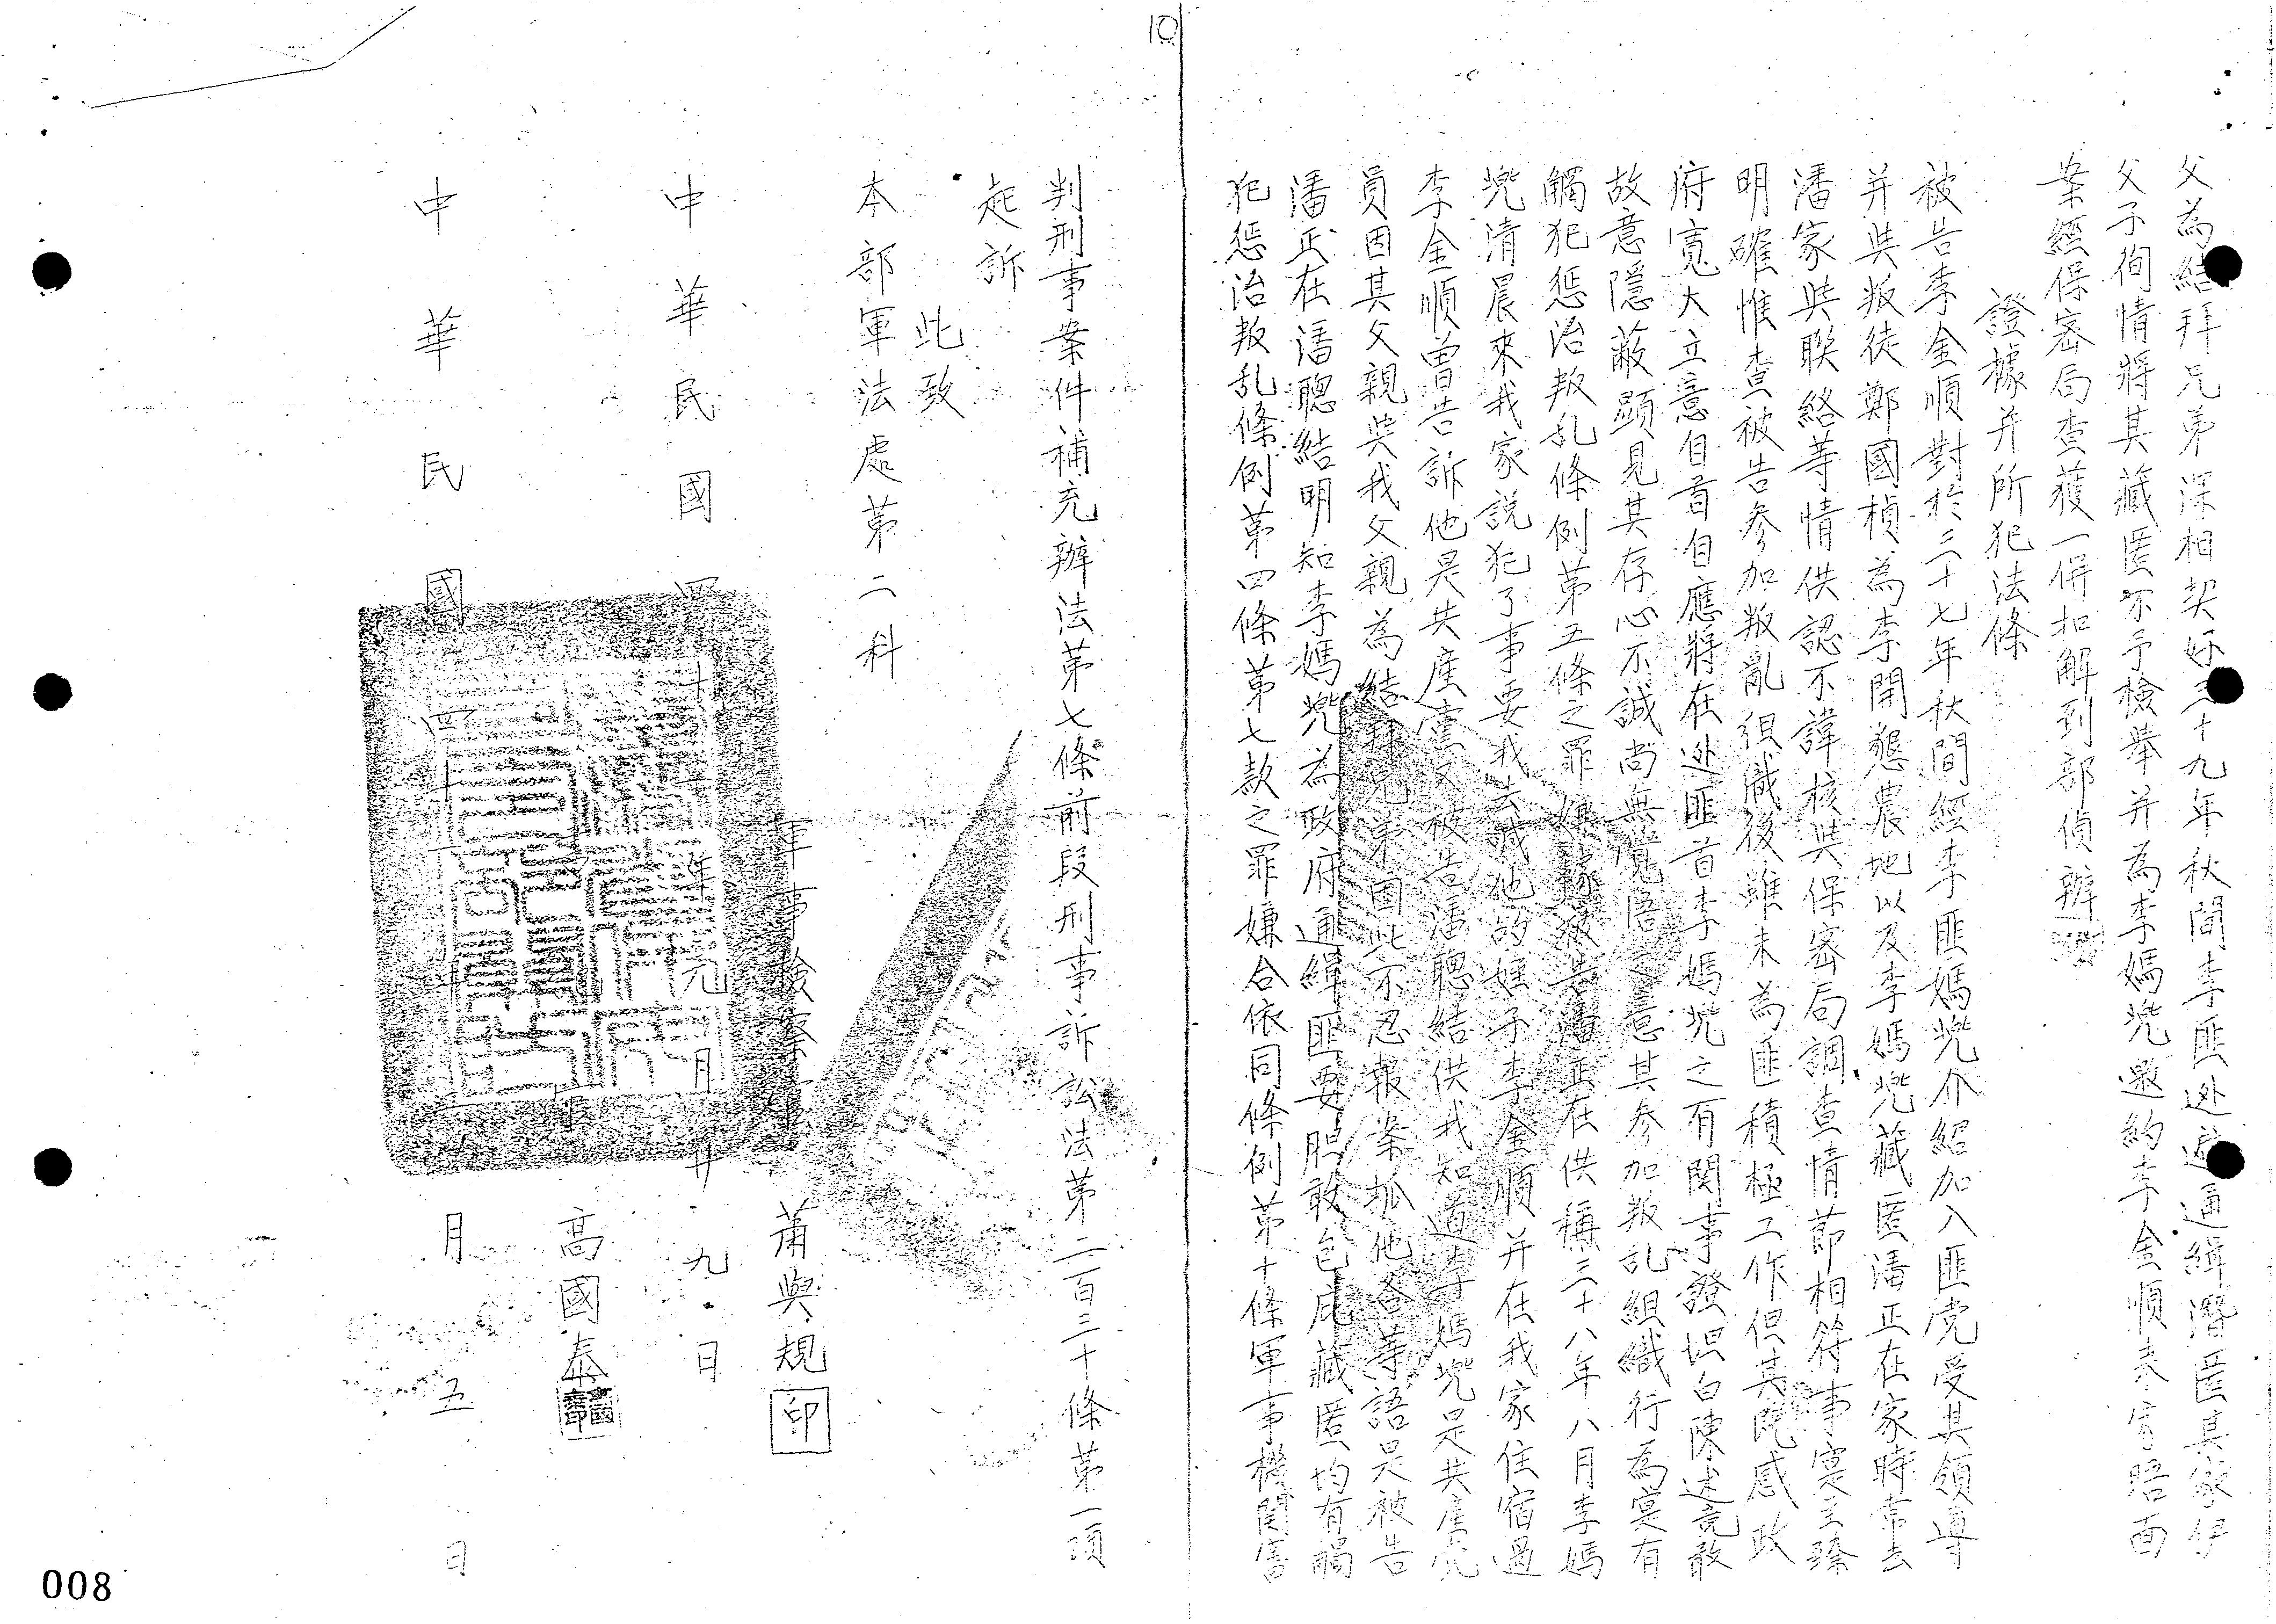 父為結拜兄弟深相契好三十九年秋間李匪逃避通緝潛匿其家伊
父子徇情將其藏匿不予檢舉并為李媽兜邀約李金順來家晤面
案經保密局查獲一併扣解到部偵辦
證據并所犯法條
被告李金順對於三十七年秋間經李匪媽兜介紹加入匪党受其領導
并與叛徒鄭國楨為李開懇農地以及李媽兜藏匿潘正在家時常去
潘家與聯絡等情供認不諱核與保密局調查情節相符事寔至臻
明確惟查被告參加叛亂組織後雖未為匪積極工作但其既感政
府寬大立意自首自應將在逃匪首李媽兜之有関事證坦白陳述竟敢
故意隱蔽顕見其存心不誠尚無覺悟之意其參加叛乱組織行為寔有
觸犯懲治叛乱條例第五條之罪嫌據被告潘正在供稱三十八年八月李媽
兜清晨來我家說犯了事要我去喊他的姪子李金順并在我家住宿過
李金順曾告訴他是共產党又被告潘聰結供我知道李媽兜是共產党
員因其父親與我父親為結拜兄弟因此不忍報案抓他各等語是被告
潘正在潘聰結明知李媽兜為政府通緝匪要胆敢包庇藏匿均有觸
犯懲治叛乱條例第四條第七款之罪嫌合依同條例第十條軍事機関審
判刑事案件補充辦法第七條前段刑事訴訟法第二百三十條第一項
起訴
此致
本部軍法處第二科
軍事檢察官 蕭與規 印
中華民國四十一年元月廿九日
高國泰
中華民國四十一年 月五日
10
008